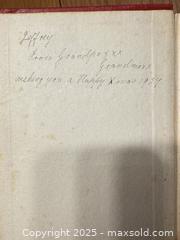 Jeffrey
From Grandpa &
Grandma
wishing you a Happy Xmas 1937
Copyright 2025 - maxsold.com